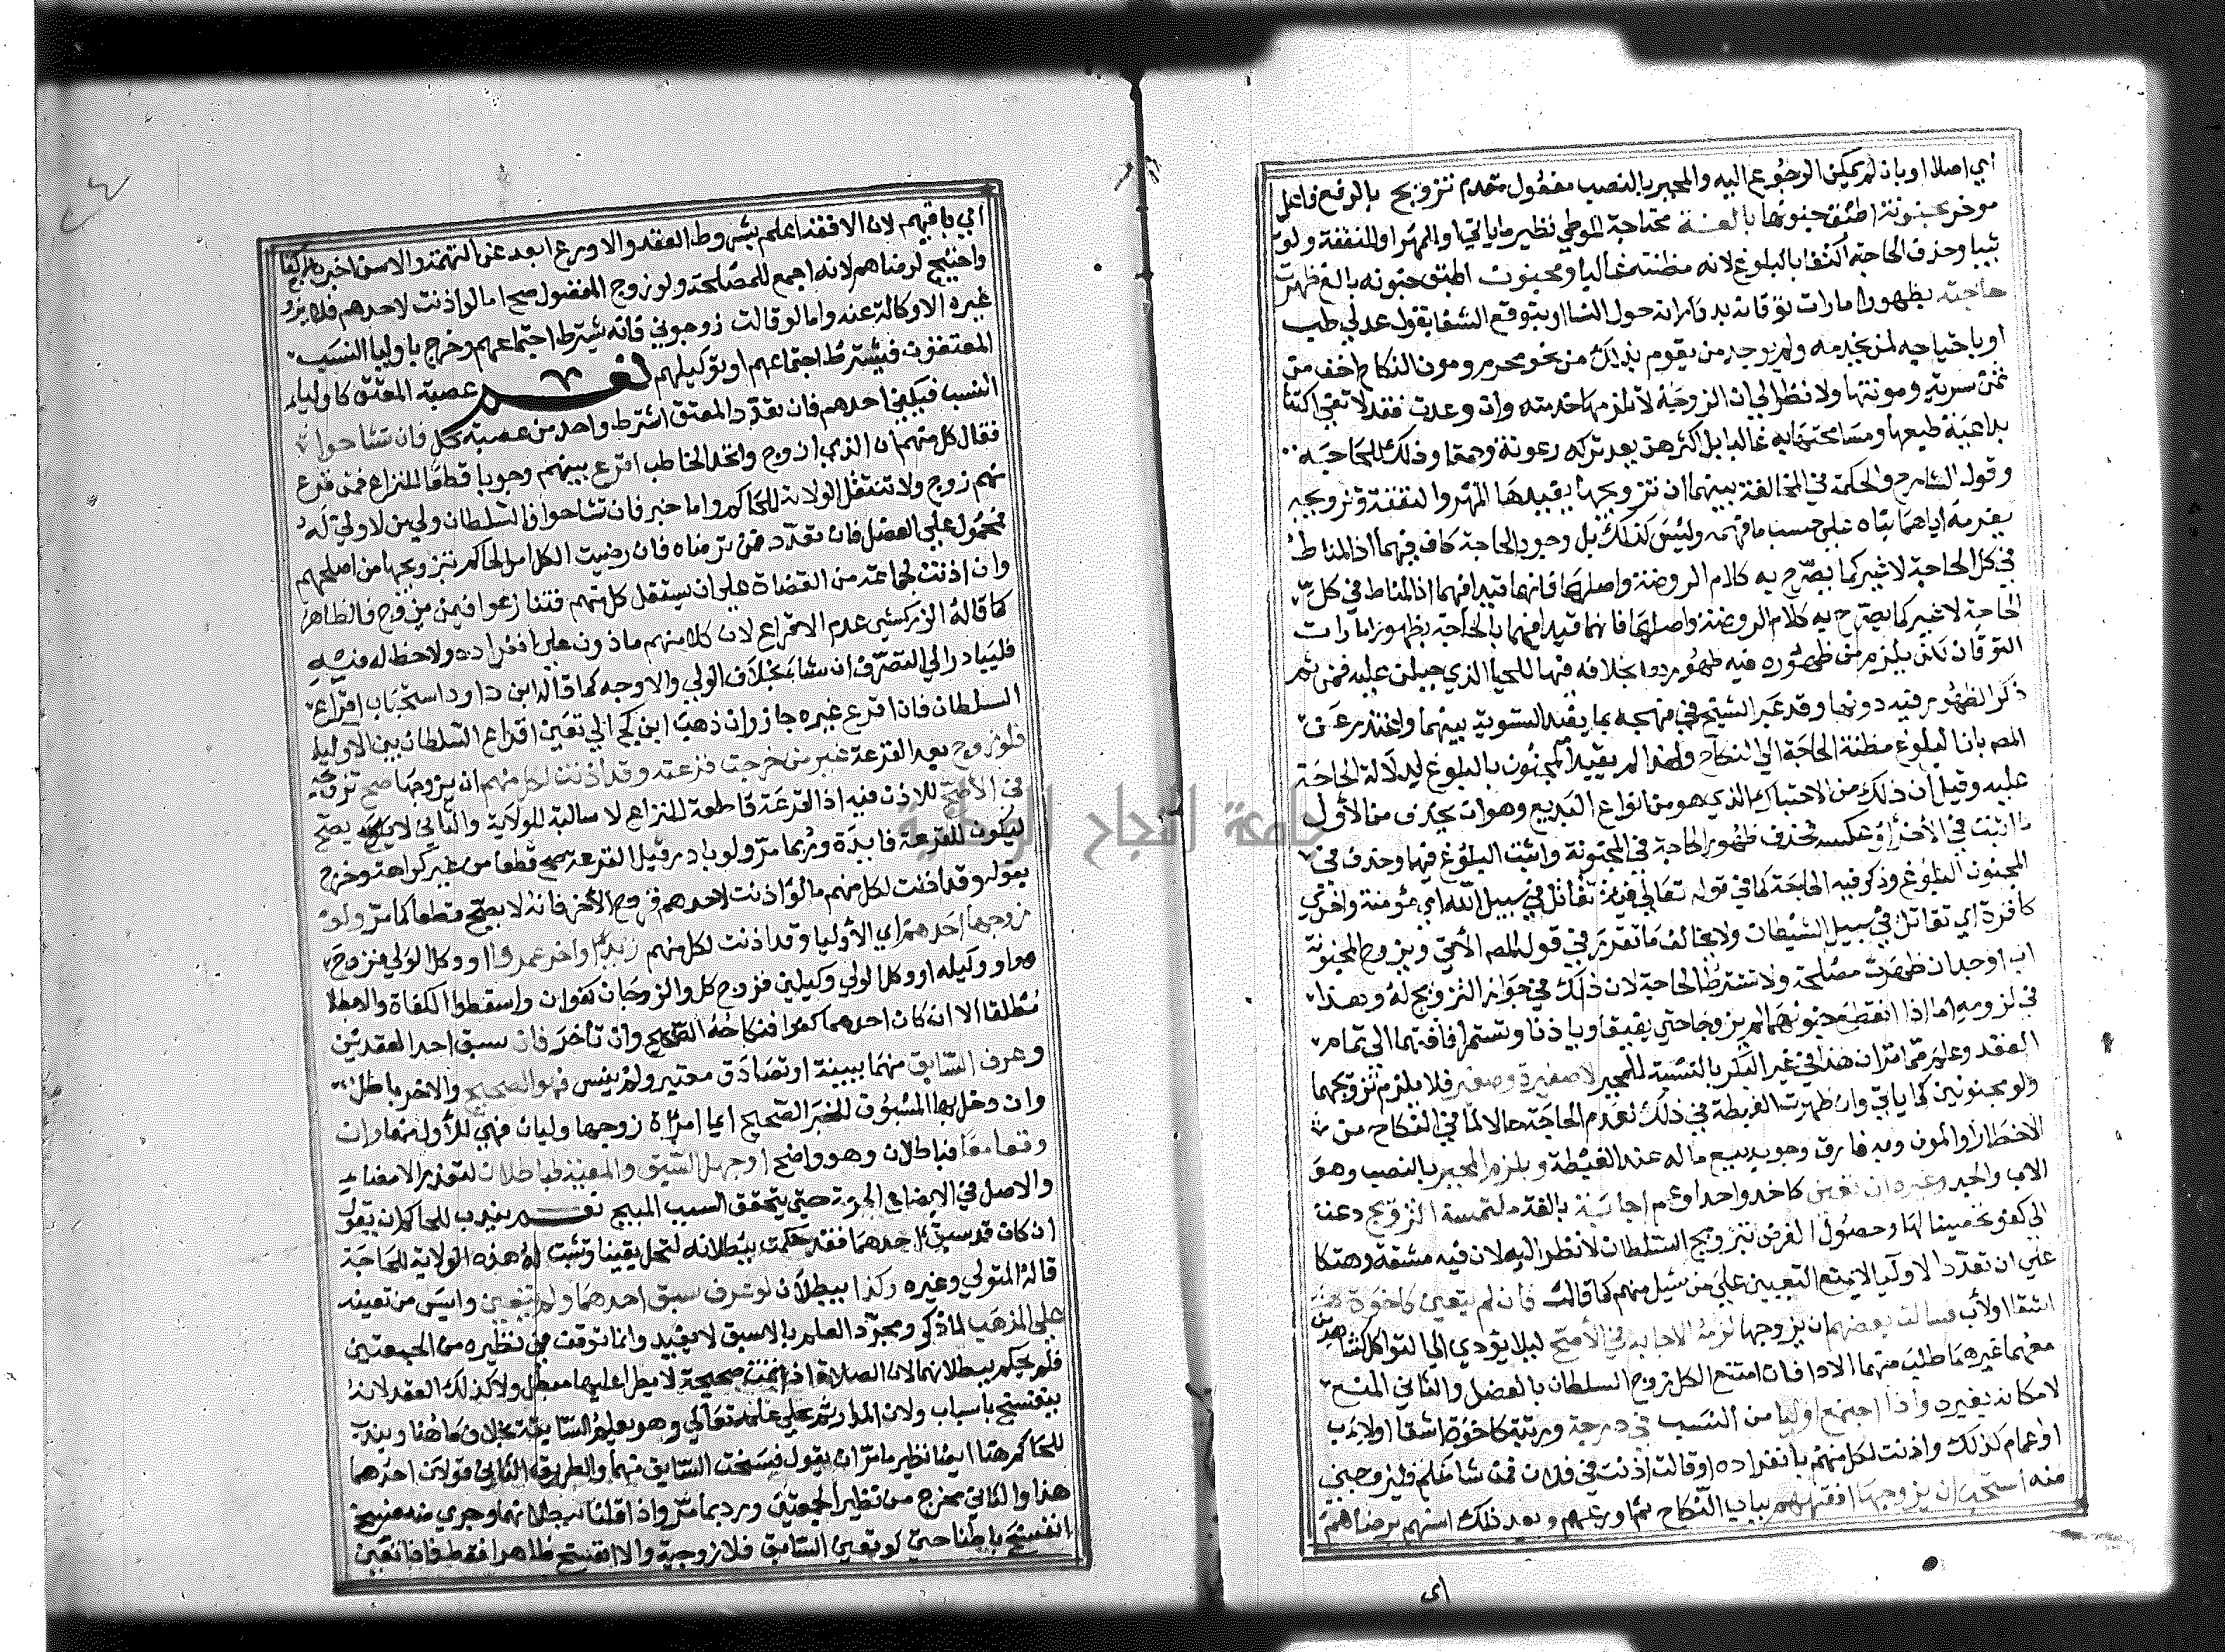 اي اصلا او بان لم يمكن الرجوع اليه والمجبر بالنصب مفعول مقدم تزويج بالرفع فاعل
موخر مجنونة اطبق جنونها بالغة محتاجة للوطي نظير ما ياتي او المهر او النفقة ولو
ثيبا وحذف الحاجة اكتفا بالبلوغ لانه مظنتها غالبا ومجنون اطبق جنونه بالغ ظهرت
حاجته بظهور امارات توقانه بدورانه حول النسا او بتوقع الشفا بقول عدلي طب
او باحتياجه لمن يخدمه ولم يوجد من يقوم بذلك من نحو محرم ومون النكاح اخف من
ثمن سرية ومونتها ولا نظر الي ان الزوجة لا يلزمها خدمته وان وعدت فقد لا تفي اكتفا
بداعية طبعها ومسامحتها به غالبا بل اكثرهن يعد تركه رعونة وحمقا وذلك للحاجة
وقول الشارح والحكمة في المخالفة بينهما ان تزويجها يفيدها المهر والنفقة وتزويجه
يغرمه اياهما بناه علي حسب ما فهمه وليس كذلك بل وجود الحاجة كاف فيهما اذ المناط
في كل الحاجة لا غير كما يصرح به كلام الروضة واصلها فانهما قيدا فيهما اذ المناط في كل
الحاجة لا غير كما يصرح به كلام الروضة واصلها فانهما قيدا فيهما بالحاجة بظهور امارات
التوقان لكن يلزم من ظهوره فيه ظهوره بخلافه فيها للحيا الذي جبلن عليه فمن ثم
ذكر الظهور فيه دونها وقد عبر الشيخ في منهجه بما يفيد التسوية بينهما واعتذر عن
المص بان البلوغ مظنة الحاجة الي النكاح ولهذا لم يقيد المجنون بالبلوغ لدلالة الحاجة
عليه وقيل ان ذلك من الاحتباك الذي هو من انواع البديع وهو ان يحذف من الاول
ما اثبت في الاخر او عكسه فحذف ظهور الحاجة في المجنونة واثبت البلوغ فيها وحذف في
المجنون البلوغ وذكر فيه الحاجة كما في قوله تعالي فية تقاتل في سبيل الله اي مؤمنة واخري
كافرة اي تقاتل في سبيل الشيطان ولا يخالف ما تقرر في قول المص الاتي ويزوج المجنونة
اب او جد ان ظهرت مصلحة ولا تشترط الحاجة لان ذلك في جواز التزويج له وهذا
في لزومه اما اذا انقطع جنونهما لم يزوجا حتي يفيقا وياذنا وتستمر افاقتهما الي تمام
العقد وعلم مما مر ان هذا في غير البكر بالنسبة للمجبر لا صغيرة وصغير فلا يلزم تزويجهما
ولو مجنونين كما ياتي وان ظهرت الغبطة في ذلك لعدم الحاجة حالا لما في النكاح من
الاخطار والمون وبه فارق وجوب بيع ماله عند الغبطة ويلزم المجبر بالنصب وهو
الاب والجد وغيره ان تعين كاخ واحد او عم اجابة بالغة ملتمسة التزويج دعت
الي كفو تحصينا لها وحصول الغرض بتزويج السلطان لا نظر اليه لان فيه مشقة وهتكا
علي ان تعدد الاوليا لا يمنع التعيين علي من سئل منهم كما قال فان لم يتعين كاخوة
اشقا او لاب فسالت بعضهم ان يزوجها لزمه الاجابة في الاصح ليلا يؤدي الي التواكل كشاهدين
معهما غيرهما طلب منهما الادا فان امتنع الكل زوج السلطان بالعضل والثاني المنع
لامكانه بغيره واذا اجتمع اوليا من النسب في درجة ورتبة كاخوة اشقا او لاب
او اعمام كذلك واذنت لكل منهم بانفراده او قالت اذنت في فلان فمن شا منكم فليزوجني
منه استحب ان يزوجها افقههم بباب النكاح ثم اورعهم وبعد ذلك اسنهم برضاهم
اي
اي باقيهم لان الافقه اعلم بشروط العقد والاورع ابعد عن التهمة والاسن اخبر بالاكفا
واحتيج لرضاهم لانه اجمع للمصلحة ولو زوج المفضول صح اما لو اذنت لاحدهم فلا يزوج
غيره الا وكالة عنه واما لو قالت زوجوني فانه يشترط اجتماعهم وخرج باوليا النسب
المعتقون فيشترط اجتماعهم او توكيلهم نعم عصبة المعتق كاوليا
النسب فيكفي احدهم فان تعدد المعتق اشترط واحد من عصبة كل فان تشاحوا
فقال كل منهم ان الذي ازوج واتحد الخاطب اقرع بينهم وجوبا قطعا للنزاع فمن قرع
منهم زوج ولا تنتقل الولاية للحاكم واما خبر فان تشاحوا فالسلطان ولي من لا ولي له
فمحمول علي العضل فان تعدد فمن ترضاه فان رضيت الكل امر الحاكم بتزويجها من اصلحهم
وان اذنت لجماعة من القضاة علي ان يستقل كل منهم فتنازعوا فيمن يزوج فالظاهر
كما قاله الزركشي عدم الاقراع لان كلا منهم ماذون علي انفراده ولا حظ له فيه
فليبادر الي التصرف ان شا بخلاف الولي والاوجه كما قاله ابن داود استحباب اقراع
السلطان فان اقرع غيره جاز وان ذهب ابن كج الي تعين اقراع السلطان بين الاوليا
فلو زوج بعد القرعة غير من خرجت قرعته وقد اذنت لكل منهم ان يزوجها صح تزويجه
في الاصح للاذن فيه اذ القرعة قاطعة للنزاع لا سالبة للولاية والثاني لا يصح
ليكون للقرعة فايدة وربما مر ولو بادر قبل القرعة صح قطعا من غير كراهة وخرج
بقوله وقد اذنت لكل منهم ما لو اذنت لاحدهم فزوج الاخر فانه لا يصح قطعا كما مر ولو
زوجها احدهم اي الاوليا وقد اذنت لكل منهم زيدا واخر عمروا او وكل الولي فزوج
هو او وكيله او وكل الولي وكيلين فزوج كل والزوجان كفوان واسقطوا الكفاة والا بطلا
مطلقا الا ان كان احدهما كفوا فنكاحه الصحيح وان تاخر فان سبق احد العقدين
وعرف السابق منهما ببينة او تصادق معتبر ولم ينس فهو الصحيح والاخر باطل
وان دخل بها المسبوق للخبر الصحيح ايما امراة زوجها وليان فهي للاول منهما وان
وقعا معا فباطلان وهو واضح او جهل السبق والمعية فباطلان لتعذر الامضا
والاصل في الابضاع الحرمة حتي يتحقق السبب المبيح نعم يندب للحاكم ان يقول
ان كان قد سبق احدهما فقد حكمت ببطلانه لتحل يقينا وتثبت له هذه الولاية للحاجة
قاله المتولي وغيره وكذا يبطلان لو عرف سبق احدهما ولم يتعين وايس من تعينه
علي المذهب لما ذكر ومجرد العلم بالاسبق لا يفيد وانما توقف في نظيره من الجمعتين
فلم يحكم ببطلانهما لان الصلاة اذا تمت صحيحة لا يطرا عليها مبطل ولا كذلك العقد لانه
يتفسخ باسباب ولان المدار ثم علي علمه تعالي وهو يعلم السابقة بخلاف ما هنا ويندب
للحاكم هنا ايضا نظير ما مر ان يقول فسخت السابق منهما والطريق الثاني قولان احدهما
هذا والثاني مخرج من نظير الجمعتين ورد بما مر واذا قلنا ببطلانهما وجري منه فسخ
انفسخ باطنا حتي لو تعين السابق فلا زوجية والا انفسخ ظاهرا فقط فاذا تعين